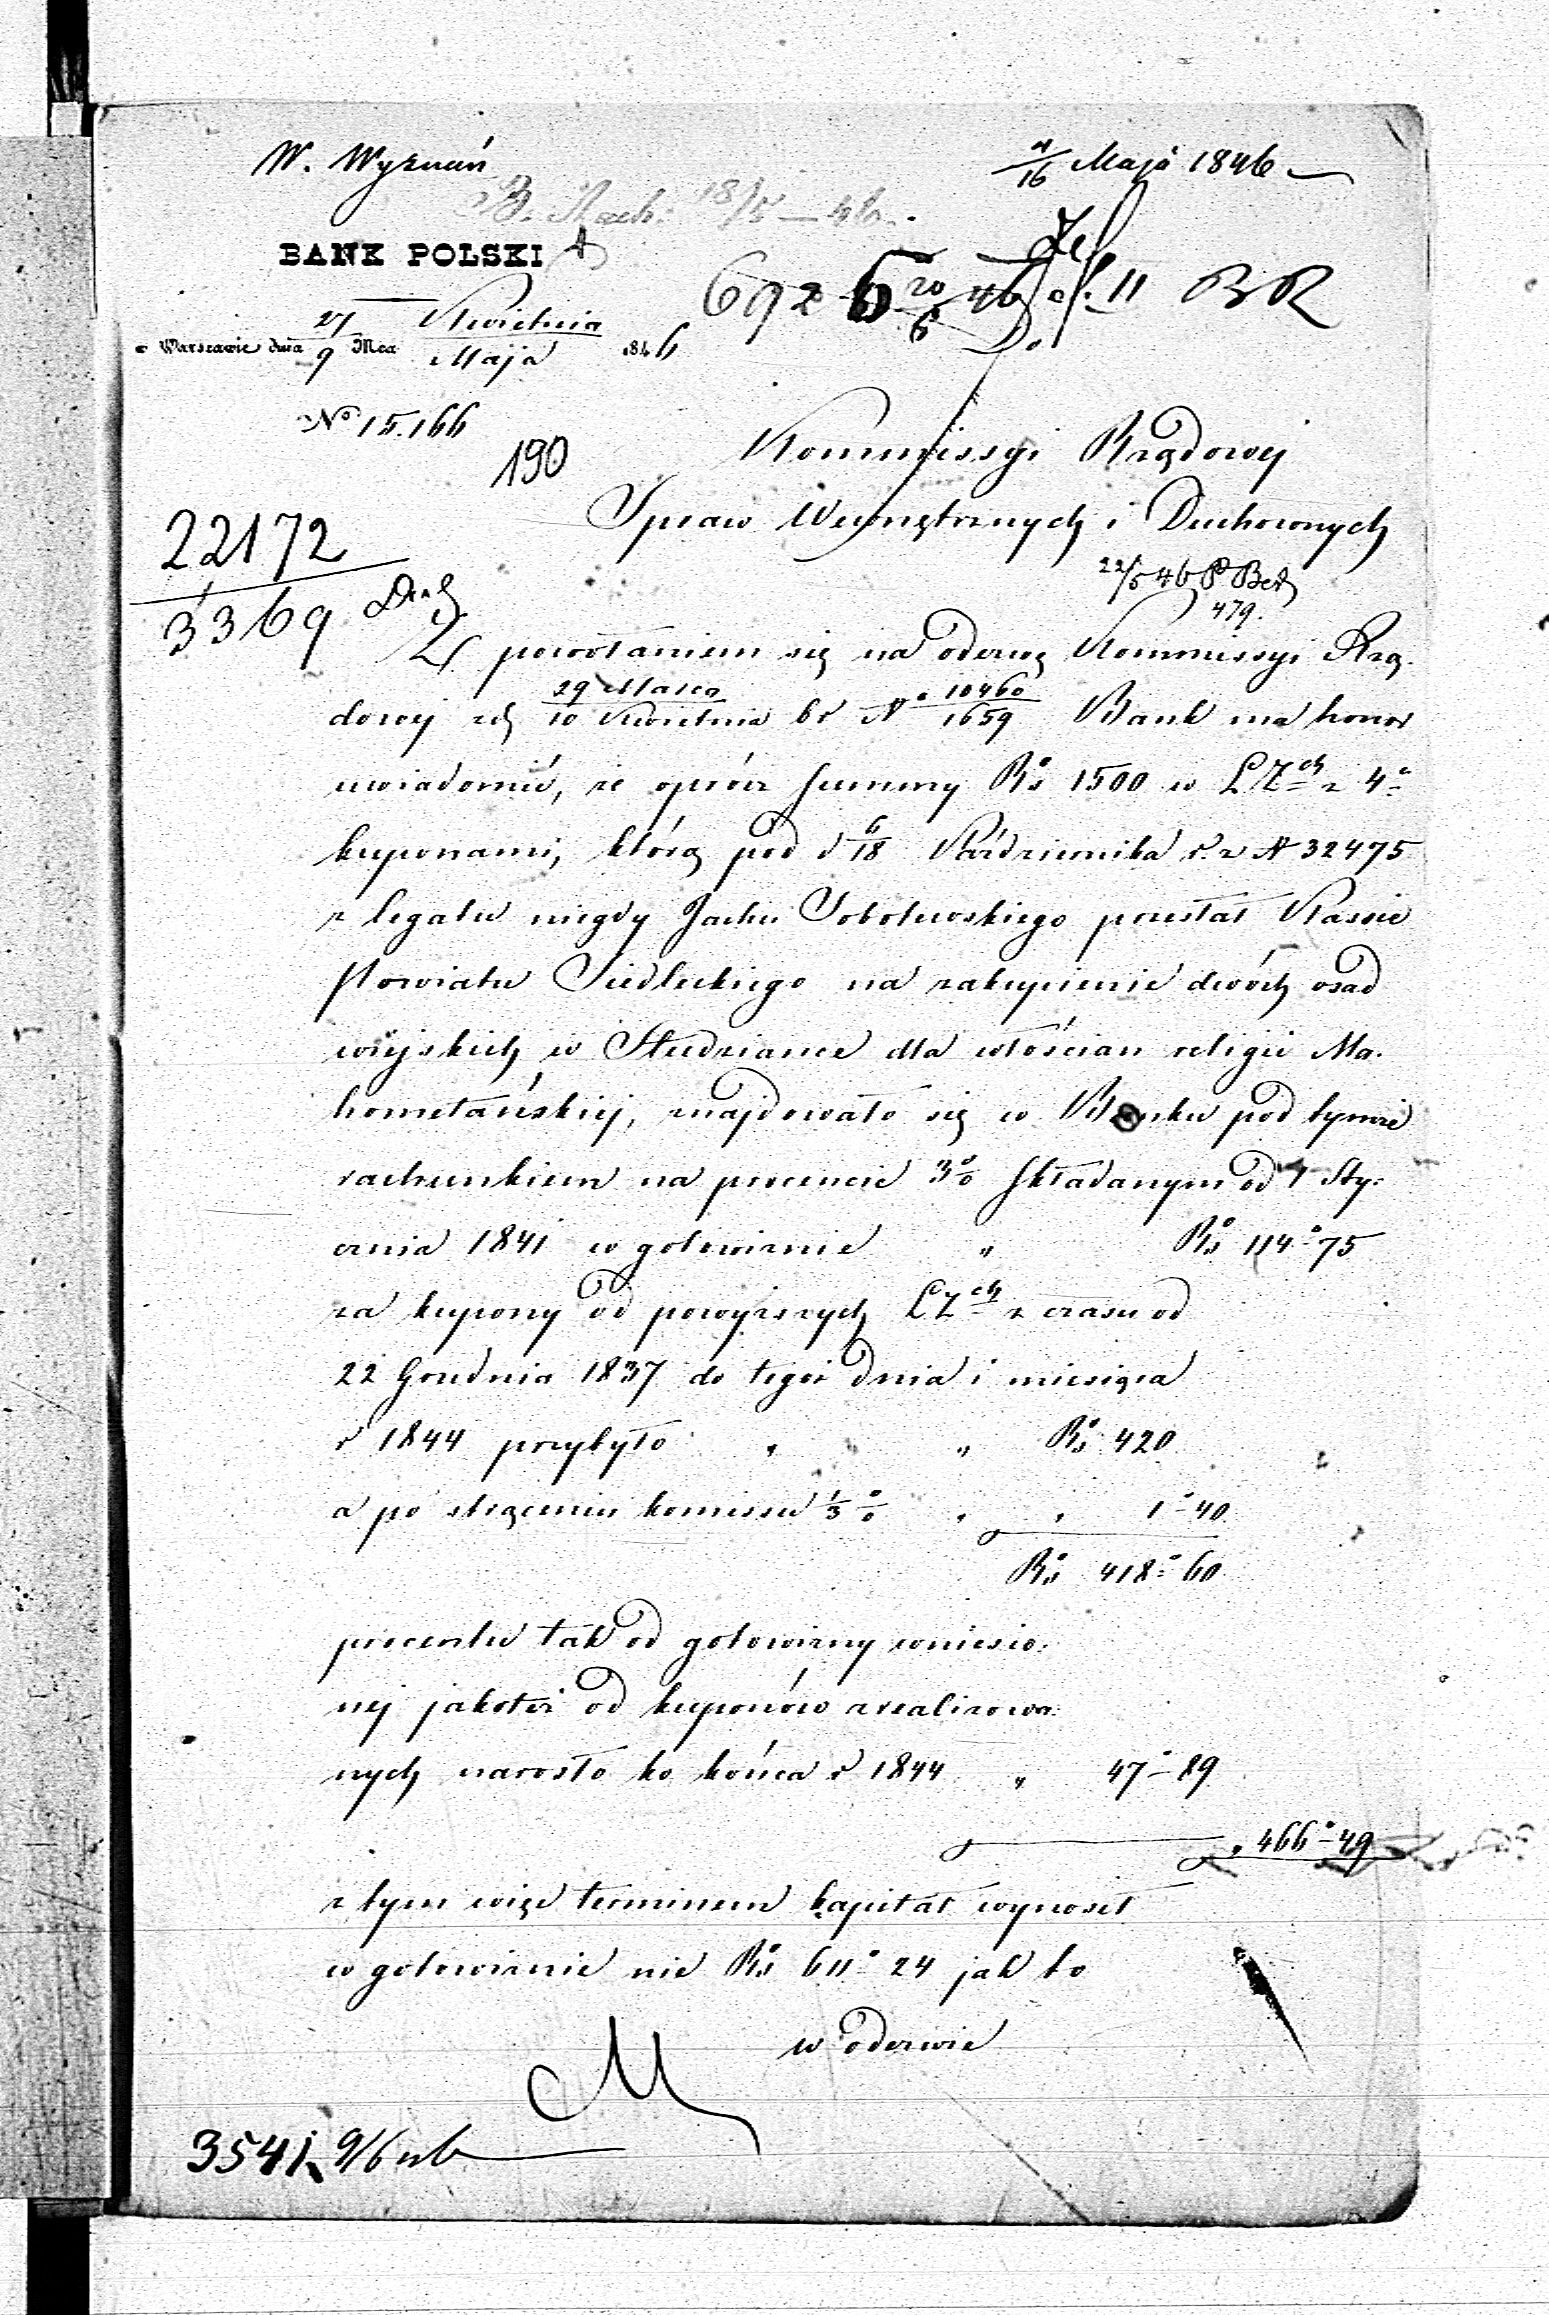 W. Wyznań
4/16 Maja 1846
BANK POLSKI
w Warszawie dnia 27/9 Mca Kwietnia/Maja 1846
No 15.166
190
Do
Kommissyi Rządowej
Spraw Wewnętrznych i Duchownych
22172
3369
22/5 46
479.
Z powołaniem się na odezwę Kommissyi Rzą-
dowej z d 29 Marca/10 Kwietnia br No 10460/1659 Bank ma honor
uwiadomić, że oprócz summy Rs 1500 w LZch z 4a
kuponami, którą pod d 6/18 Października r. z N 32475
z legatu niegdy Jacka Sobolewskiego przesłał Kassie
Powiatu Siedleckiego na zakupienie dwóch osad
wiejskich w Studziance dla włościan religii Ma-
hometańskiej, znajdowało się w Banku pod tymże
rachunkiem na procencie 3% składanym od 1 Sty-
cznia 1841 w gotowiznie " Rs 114-75
za kupony od powyższych LZch z czasu od
22 Grudnia 1837 do tegoż dnia i miesiąca
r 1844 przybyło " " Rs 420
a po strąceniu komissu 1/3 % " " 1-40
Rs 418-60
procentu tak od gotowizny wniesio-
nej jakoteż od kuponów zrealizowa-
nych narosło do końca r 1844 " 47-89
" 466-49
z tym więc terminem kapitał wynosił
w gotowiznie nie Rs 611-24 jak to
w odezwie
3541